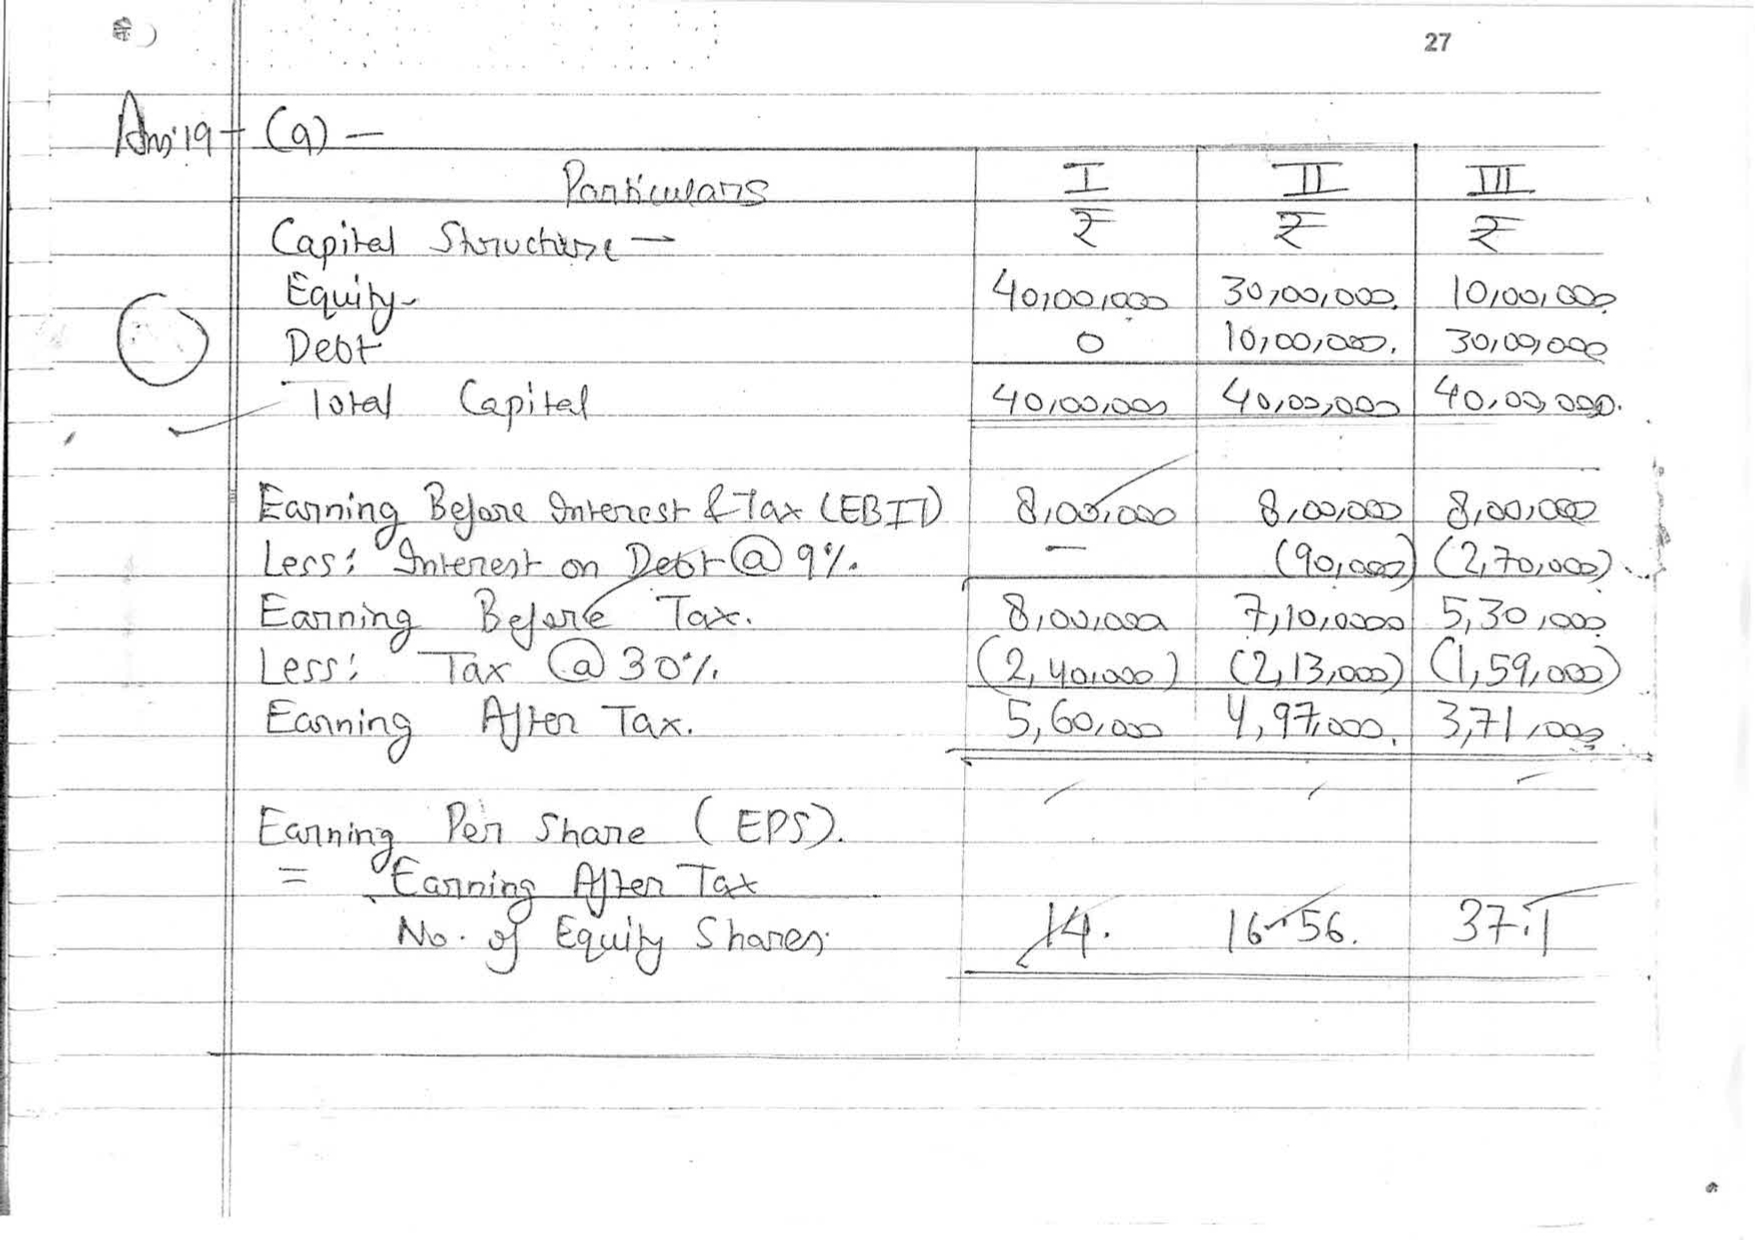 27
Ans 19 - (a) -
Particulars I II III
₹ ₹ ₹
Capital Structure -
Equity 40,00,000 30,00,000 10,00,000
Debt 0 10,00,000 30,00,000
Total Capital 40,00,000 40,00,000 40,00,000
Earning Before Interest & Tax (EBIT) 8,00,000 8,00,000 8,00,000
Less: Interest on Debt @ 9%. - (90,000) (2,70,000)
Earning Before Tax. 8,00,000 7,10,0000 5,30,000
Less: Tax @ 30% (2,40,000) (2,13,000) (1,59,000)
Earning After Tax. 5,60,000 4,97,000 3,71,000
Earning Per Share (EPS).
= Earning After Tax
No. of Equity Shares 14. 16.56. 37.1